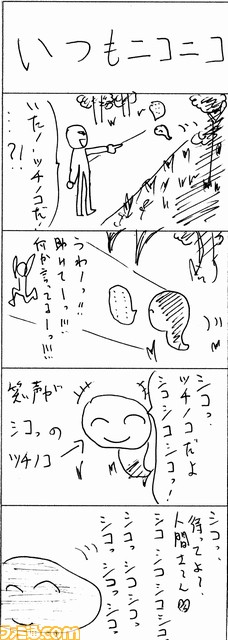 いつもニコニコ
いた！ツチノコだ！
…?!
うわーっ!!
助けてーっ!!!
何か言ってるーっ!!!
シコっ、
ツチノコだよ
シコシコシコっ！
笑声が
シコっの
ツチノコ
シコっ、
待ってよ〜、
人間さ〜ん
シコシコシコシコっ
シコっシコっシコっ
ファミ通.com